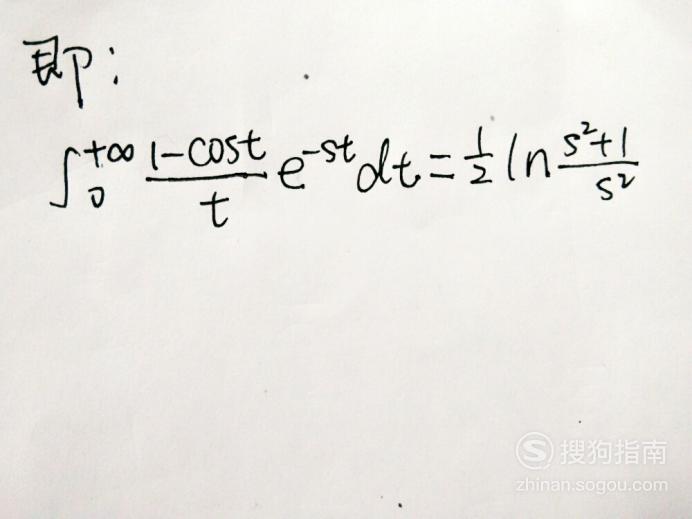 即:
∫₀^{+∞} \frac{1-cost}{t} e^{-st} dt = \frac{1}{2} ln \frac{s²+1}{s²}
S 搜狗指南
zhinan.sogou.com